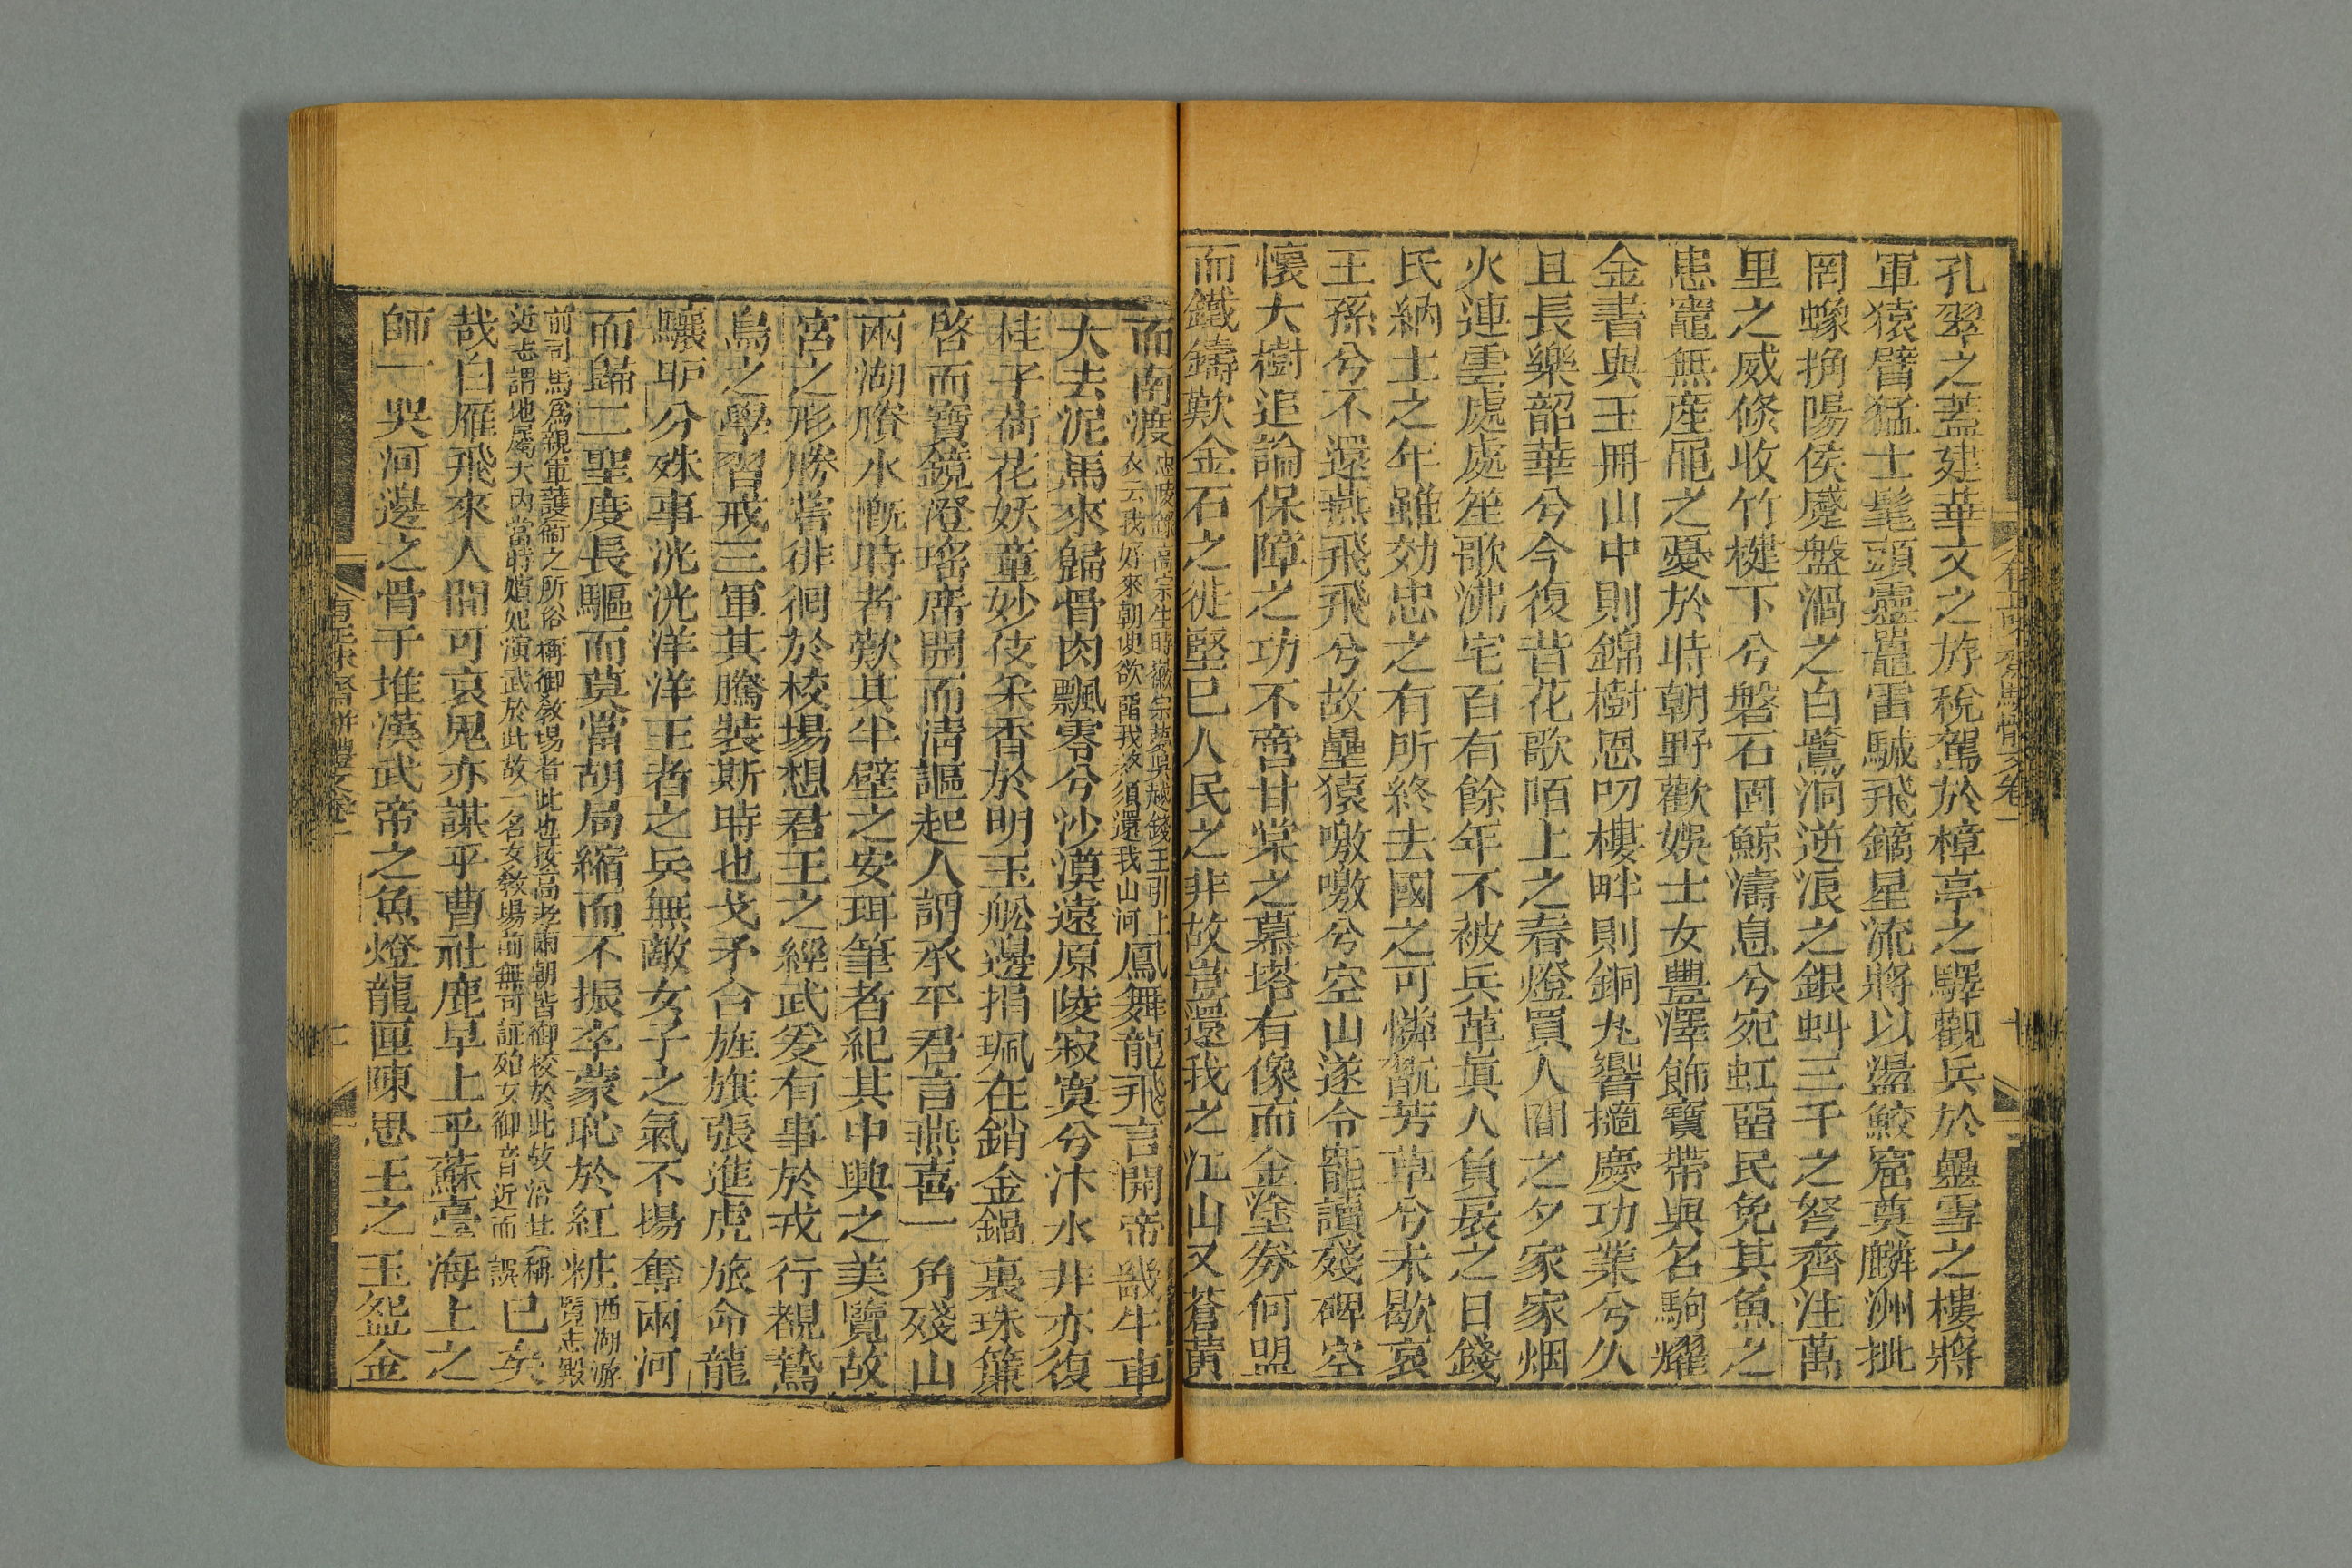 孔翠之蓋建華文之斿稅駕於樟亭之驛觀兵於疊雪之樓將
軍猿臂猛士髦頭靈鼉雷駴飛鏑星流將以盪鮫窟奠麟洲批
罔蟓捔陽侯蹙盤渦之白鷺洞逆浪之銀虯三千之弩齊注萬
里之威倏收竹楗下兮磐石固鯨濤息兮宛虹畱民免其魚之
患竈無産黽之憂於時朝野歡娛士女豐澤飾寶帶與名駒耀
金書與玉冊山中則錦樹恩叨樓畔則銅丸響擿慶功業兮久
且長樂韶華兮今復昔花歌陌上之春燈買人間之夕家家烟
火連雲處處笙歌沸宅百有餘年不被兵革眞人負扆之日錢
氏納土之年雖効忠之有所終去國之可憐翫芳草兮未歇哀
王孫兮不還燕飛飛兮故壘猿噭噭兮空山遂令龕讀殘碑空
懷大樹追論保障之功不啻甘棠之慕塔有像而金塗券何盟
而鐵鑄歎金石之徙堅已人民之非故豈還我之江山又蒼黃
而南渡
高宗生時徽宗夢吳越錢王引上
衣云我好來朝便欲畱我終須還我山河
鳳舞龍飛言開帝畿牛車
大去泥馬來歸骨肉飄零兮沙漠遠原陵寂寞兮汴水非亦復
桂子荷花妖童妙伎采香於明玉舩邊捐珮在銷金鍋裏珠簾
啓而寶鏡澄瑤席開而淸謳起人謂承平君言燕喜一角殘山
兩湖賸水慨時者歎其半壁之安珥筆者紀其中興之美覽故
宮之形勝嘗徘徊於校場想君王之經武爰有事於戎行覩鵞
鳥之學習戒三軍其騰裝斯時也戈矛合旌旗張進虎旅命龍
驤馿分殊事洸洸洋洋王者之兵無敵女子之氣不揚奪兩河
而歸二聖度長驅而莫當胡局縮而不振卒蒙恥於紅粧
西湖游
覽志毀
前司馬爲親軍護衞之所俗稱御敎場者此也按高孝兩朝皆御校於此故沿其稱
近志謂地屬大內當時嬪妃演武於此故一名女敎場前無可証殆女御音近而誤
已矣
哉白雁飛來人間可哀鬼亦謀乎曹社鹿早上乎蘇臺海上之
師一哭河邊之骨千堆漢武帝之魚燈龍匣陳思王之玉盌金